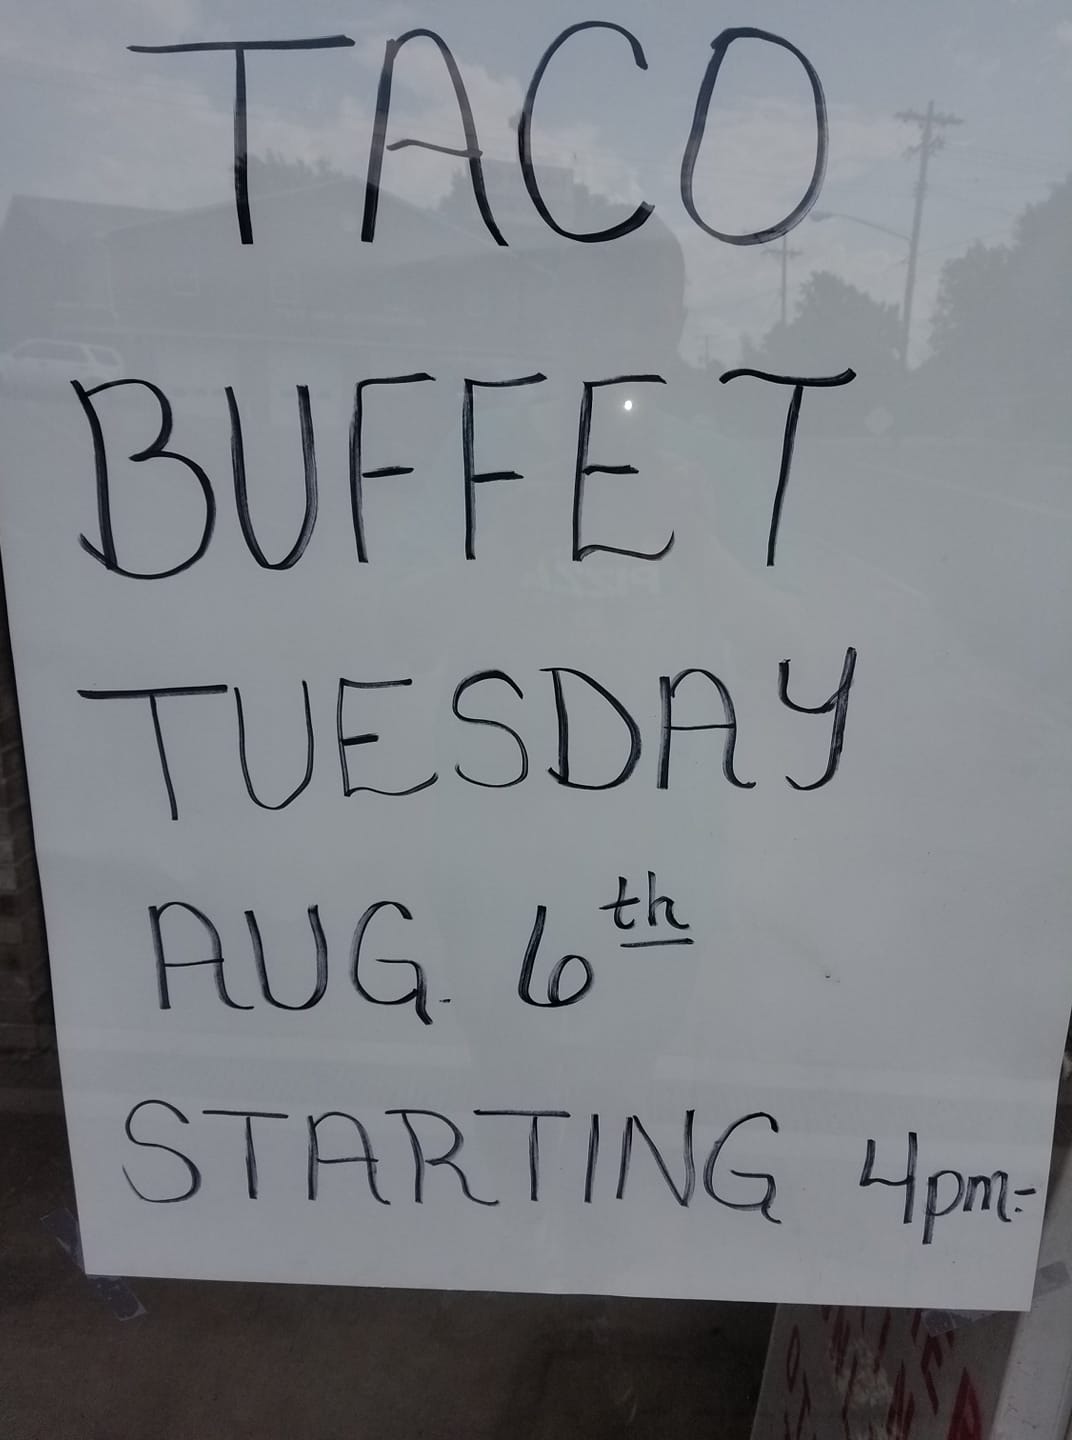 TACO
BUFFET
TUESDAY
AUG. 6th
STARTING 4pm-